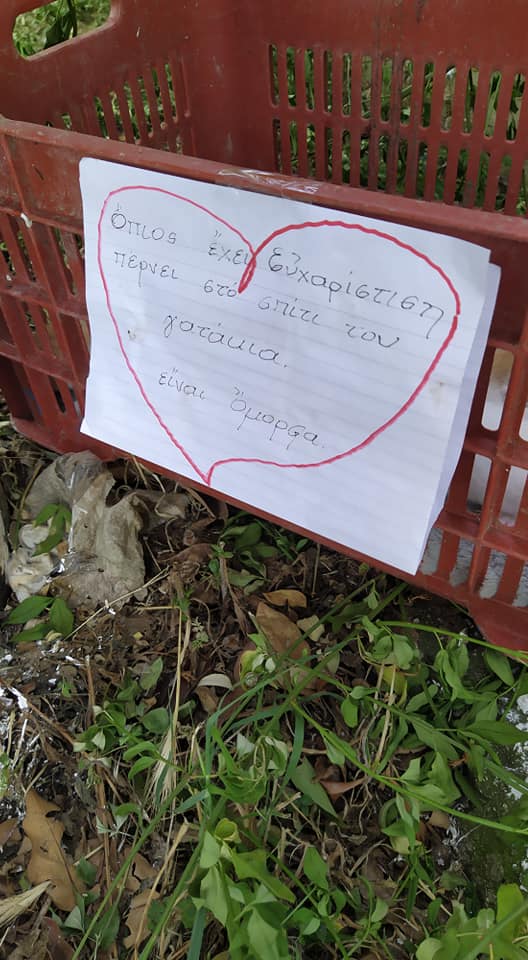 Ὅπιος ἔχει Εὐχαρίστιση
πέρνει στό σπίτι τον
γατάκια.
εἶναι Ὄμορφα.